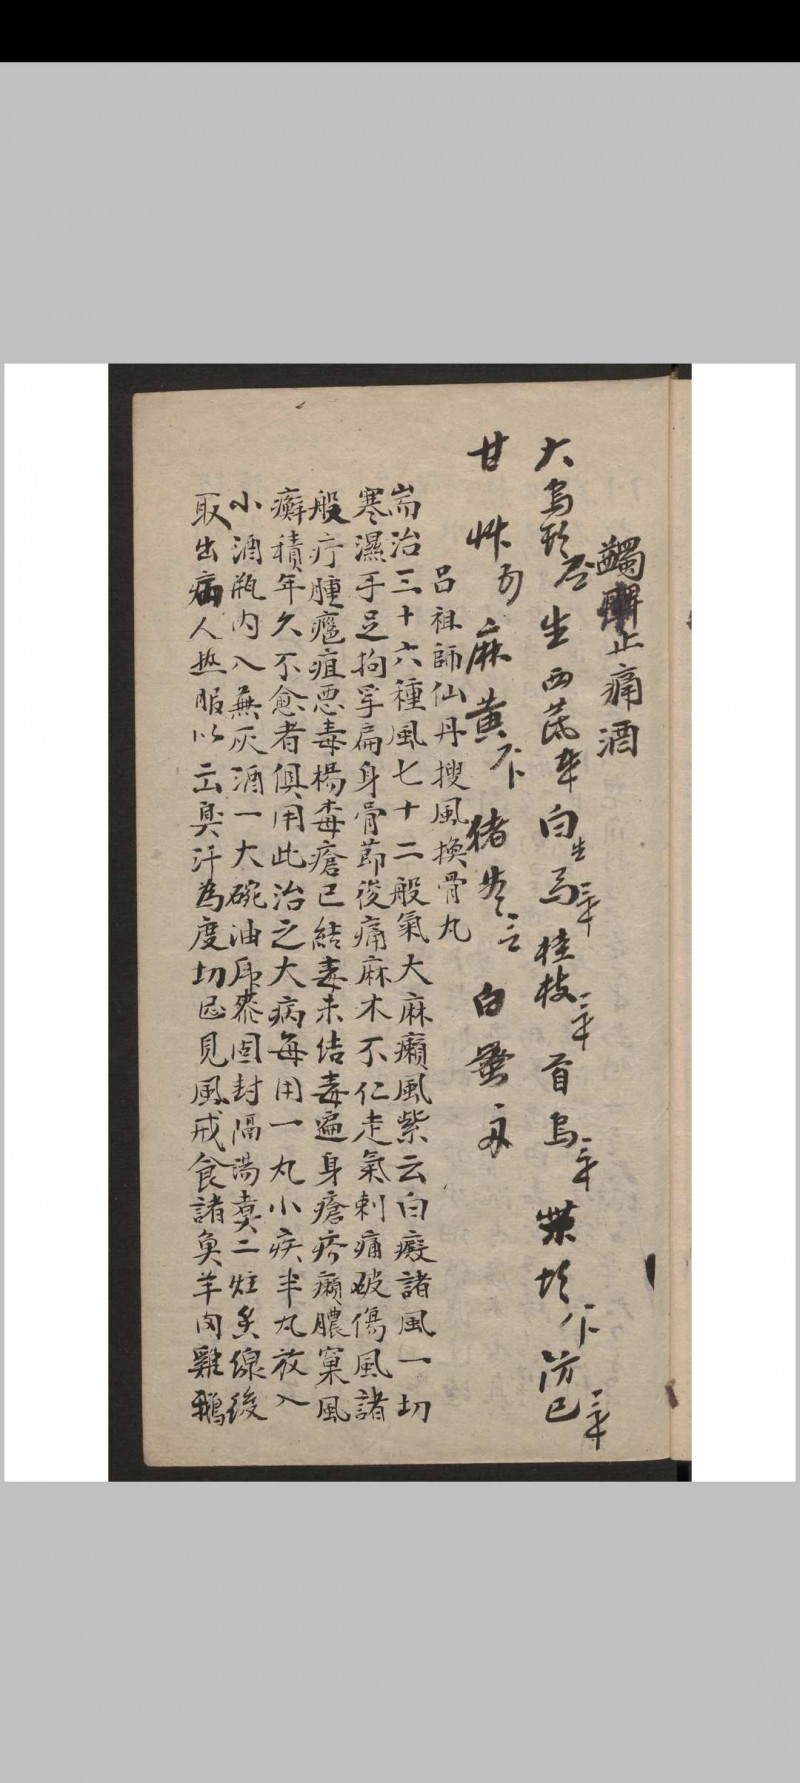 蠲痹止痛酒
大烏 生西芪 白生芍 桂枝 首烏 柴 防己
甘艸 麻黃 猪苓 白
呂祖師仙丹搜風換骨丸
耑治三十六種風七十二般氣大麻癩風紫云白癜諸風一切
寒濕手足拘孿扁身骨節痠痛麻木不仁走氣刺痛破傷風諸
般疔腫癰疽惡毒楊毒瘡已結毒未结毒遍身瘡疥癩膿窠風
癬積年久不愈者俱用此治之大病每用一丸小疾半丸放入
小酒瓶内入無灰酒一大碗油紙固封隔湯煑二炷香線後
取出病人热服以出臭汗為度切忌見風戒食諸魚羊肉雞鵝